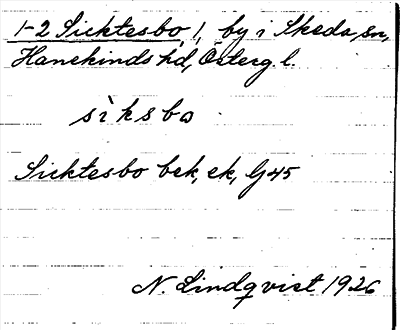 1-2 Sicktesbo /, by i Skeda sn,
Hanekinds hd, Österg. l.
sìksbo
Sicktesbo bek, ek, Gj45
N. Lindqvist 1926